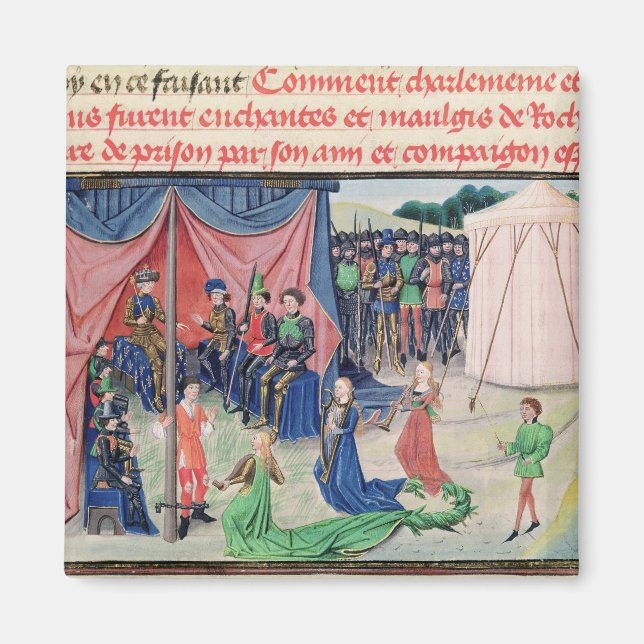 oy en ce faisant Comment charlememe et
us furent enchantes et maulgis de Roch
re de prison par son ami et compaignon